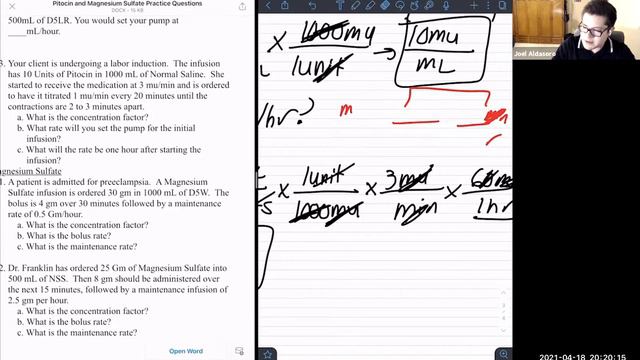 Pitocin and Magnesium Sulfate Practice Questions
DOCX - 15 KB
500mL of D5LR. You would set your pump at
____mL/hour.
3. Your client is undergoing a labor induction. The infusion
has 10 Units of Pitocin in 1000 mL of Normal Saline. She
started to receive the medication at 3 mu/min and is ordered
to have it titrated 1 mu/min every 20 minutes until the
contractions are 2 to 3 minutes apart.
a. What is the concentration factor?
b. What rate will you set the pump for the initial
infusion?
c. What will the rate be one hour after starting the
infusion?
agnesium Sulfate
1. A patient is admitted for preeclampsia. A Magnesium
Sulfate infusion is ordered 30 gm in 1000 mL of D5W. The
bolus is 4 gm over 30 minutes followed by a maintenance
rate of 0.5 Gm/hour.
a. What is the concentration factor?
b. What is the bolus rate?
c. What is the maintenance rate?
2. Dr. Franklin has ordered 25 Gm of Magnesium Sulfate into
500 mL of NSS. Then 8 gm should be administered over
the next 15 minutes, followed by a maintenance infusion of
2.5 gm per hour.
a. What is the concentration factor?
b. What is the bolus rate?
c. What is the maintenance rate?
Open Word
x 1000mu → 10mu
1unit mL
/hr? m
x 1unit x 3mu x
1000mu min 1hr
Joel Aldasoro
2021-04-18 20:20:15